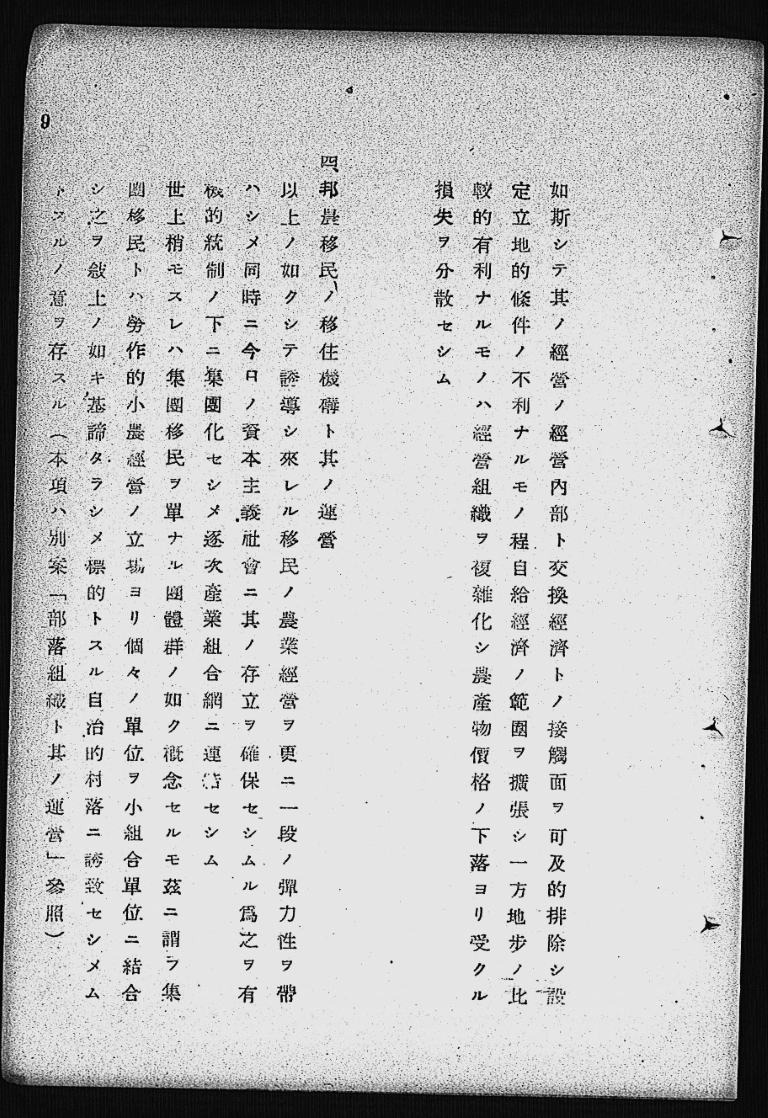 如斯シテ其ノ經營ノ經營內部ト交換經濟トノ接觸面ヲ可及的排除シ設
定立地的條件ノ不利ナルモノ程自給經濟ノ範圍ヲ擴張シ一方地步ノ比
較的有利ナルモノハ經營組織ヲ複雜化シ農產物價格ノ下落ヨリ受クル
損失ヲ分散セシム
四、邦農移民ノ移住機構ト其ノ運營
以上ノ如クシテ誘導シ來レル移民ノ農業經營ヲ更ニ一段ノ彈力性ヲ帶
ハシメ同時ニ今日ノ資本主義社會ニ其ノ存立ヲ確保セシムル爲之ヲ有
機的統制ノ下ニ集團化セシメ逐次產業組合網ニ連結セシム
世上稍モスレハ集團移民ヲ單ナル團體群ノ如ク概念セルモ茲ニ謂フ集
團移民トハ勞作的小農經營ノ立場ヨリ個々ノ單位ヲ小組合單位ニ結合
シ之ヲ敍上ノ如キ基諦タラシメ標的トスル自治的村落ニ誘致セシメム
トスルノ意ヲ存スル（本項ハ別案「部落組織ト其ノ運營」參照）
9